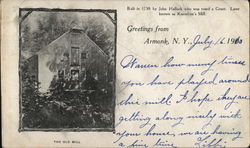 Built in 1738 by John Hallock who was tored a Court. Later
known as Knowlton's Mill.
Greetings from
Armonk, N. Y., July 16, 190
Warren how many times
you have played around
this mill. I hope they are
getting along nicely with
your house, we are having
a fine time
THE OLD MILL